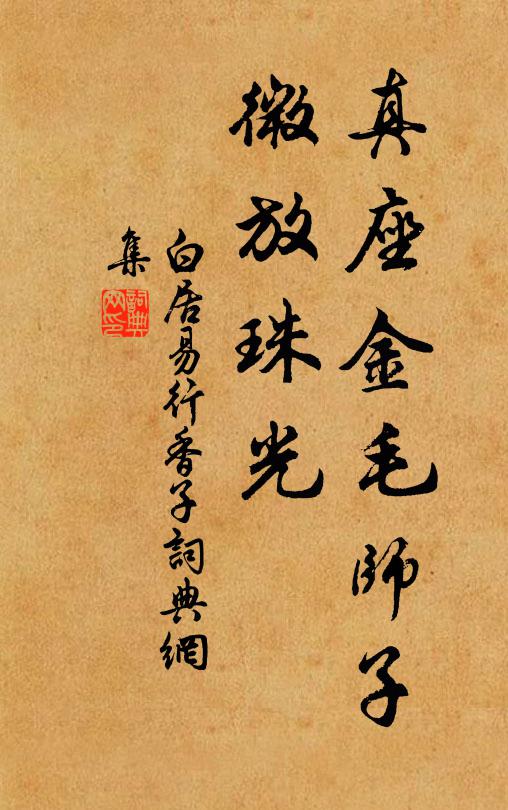 真座金毛師子
微放珠光
白居易行香子詞典網
集
詞典網印